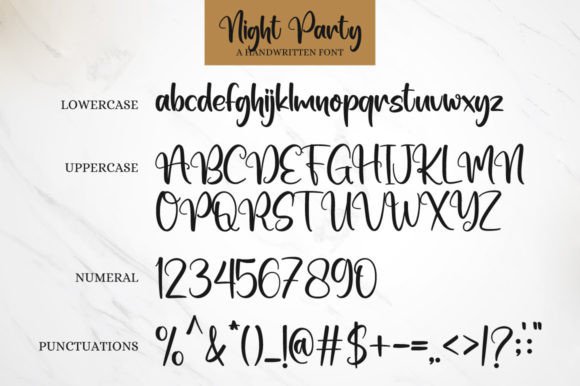 Night Party
A HANDWRITTEN FONT
LOWERCASE abcdefghijklmnopqrstuvwxyz
UPPERCASE ABCDEFGHIJKLMN
OPQRSTUVWXYZ
NUMERAL 1234567890
PUNCTUATIONS %^&*()_!@#$+-=,.<>|?;:'"